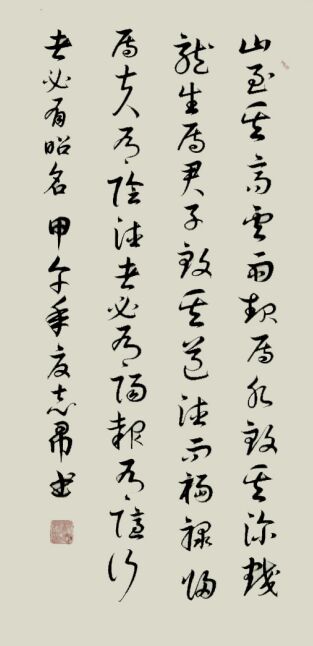 山至其高雲雨起焉水致其深蛟
龍生焉君子致其道德而福禄歸
焉夫有陰德者必有陽報有隱行
者必有昭名 甲午年志書